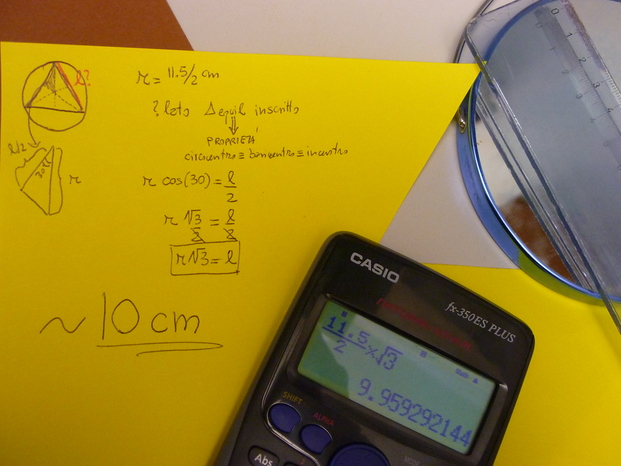 l?
r = 11.5/2 cm
? lato Δ equil inscritto
⇓
PROPRIETÀ
circocentro ≡ baricentro ≡ incentro
l/2
30°
r
r cos(30) = l/2
r √3/2 = l/2
r√3 = l
~ 10 cm
CASIO
fx-350ES PLUS
11.5/2×√3
9.959292144
SHIFT
ALPHA
Abs
0
1
2
3
4